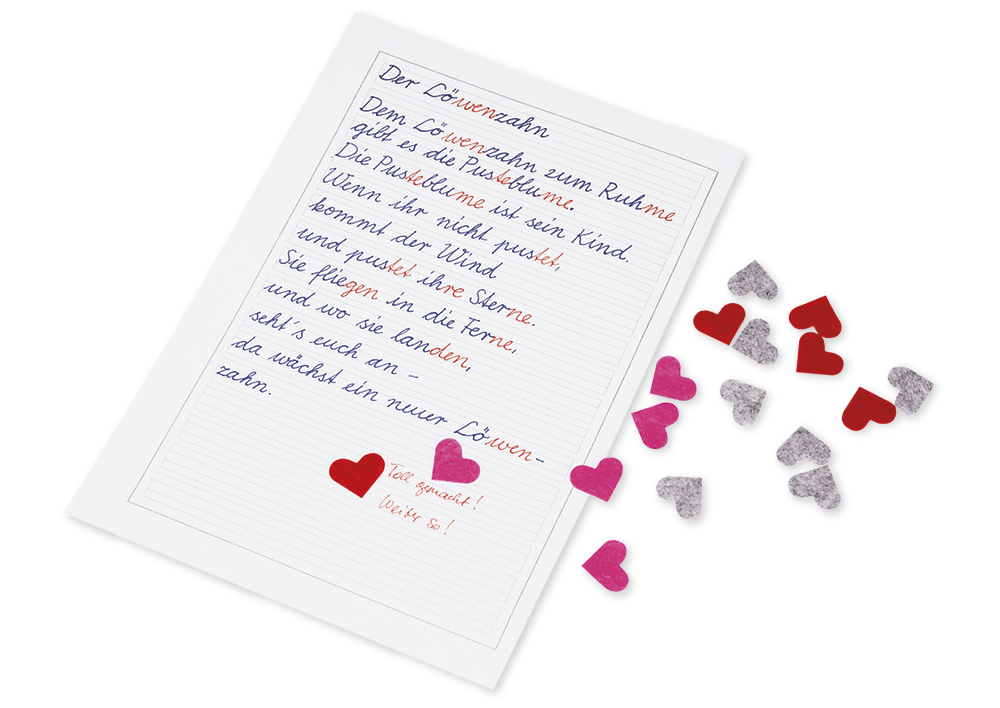 Der Löwenzahn
Dem Löwenzahn zum Ruhme
gibt es die Pusteblume.
Die Pusteblume ist sein Kind.
Wenn ihr nicht pustet,
kommt der Wind
und pustet ihre Sterne.
Sie fliegen in die Ferne,
und wo sie landen,
seht's euch an –
da wächst ein neuer Löwen-
zahn.
Toll gemacht!
Weiter so!